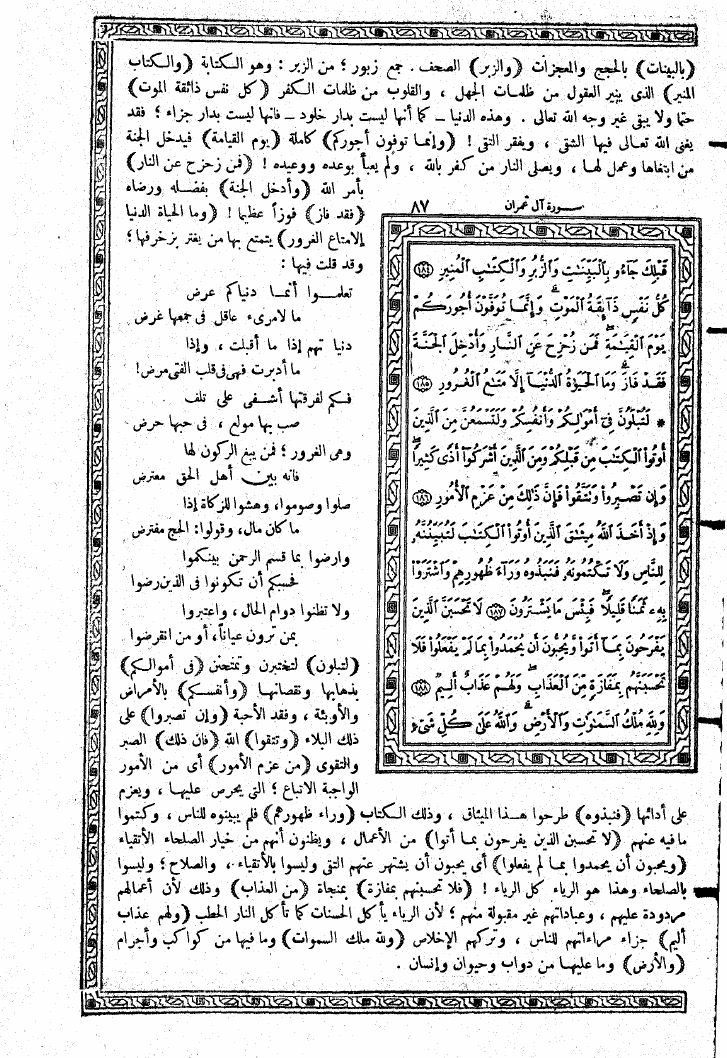 (بالبينات) بالحجج والمعجزات (والزبر) الصحف. جمع زبور؛ من الزبر: وهو الكتابة (والكتاب
المنير) الذى ينير العقول من ظلمات الجهل، والقلوب من ظلمات الكفر (كل نفس ذائقة الموت)
حتما ولا يبقى غير وجه الله تعالى. وهذه الدنيا ـ كما أنها ليست بدار خلود ـ فانها ليست بدار جزاء؛ فقد
يغنى الله تعالى فيها الشقى، ويفقر التقى! (وإنما توفون أجوركم) كاملة (يوم القيامة) فيدخل الجنة
من ابتغاها وعمل لها، ويصلى النار من كفر بالله، ولم يعبأ بوعده ووعيده! (فمن زحزح عن النار)
بأمر الله (وأدخل الجنة) بفضله ورضاه
(فقد فاز) فوزاً عظيما! (وما الحياة الدنيا
إلا متاع الغرور) يتمتع بها من يغتر بزخرفها؛
وقد قلت فيها:
تعلموا أنما دنياكم عرض
ما لامرىء عاقل فى جمعها غرض
دنيا تهم إذا ما أقبلت، وإذا
ما أدبرت فهى فى قلب الفتى مرض!
فكم لفرقتها أشفى على تلف
صب بها مولع، فى حبها حرض
وهى الغرور؛ فمن يبغ الركون لها
فانه بين أهل الحق معترض
صلوا وصوموا، وهشوا للزكاة إذا
ما كان مال، وقولوا: الحج مفترض
وارضوا بما قسم الرحمن بينكمو
فحسبكم أن تكونوا فى الذين رضوا
ولا تظنوا دوام الحال، واعتبروا
بمن ترون عياناً، أو من انقرضوا
(لتبلون) لتختبرن وتمتحنن (فى أموالكم)
بذهابها ونقصانها (وأنفسكم) بالأمراض
والأوبئة، وفقد الأحبة (وإن تصبروا) على
ذلك البلاء (وتتقوا) الله (فان ذلك) الصبر
والتقوى (من عزم الأمور) أى من الأمور
الواجبة الاتباع؛ التى يحرص عليها، ويعزم
سورة آل عمران ٨٧
قَبْلِكَ جَآءُو بِٱلْبَيِّنَٰتِ وَٱلزُّبُرِ وَٱلْكِتَٰبِ ٱلْمُنِيرِ ١٨٤
كُلُّ نَفْسٍ ذَآئِقَةُ ٱلْمَوْتِ وَإِنَّمَا تُوَفَّوْنَ أُجُورَكُمْ
يَوْمَ ٱلْقِيَٰمَةِ فَمَن زُحْزِحَ عَنِ ٱلنَّارِ وَأُدْخِلَ ٱلْجَنَّةَ
فَقَدْ فَازَ وَمَا ٱلْحَيَوٰةُ ٱلدُّنْيَآ إِلَّا مَتَٰعُ ٱلْغُرُورِ ١٨٥
* لَتُبْلَوُنَّ فِىٓ أَمْوَٰلِكُمْ وَأَنفُسِكُمْ وَلَتَسْمَعُنَّ مِنَ ٱلَّذِينَ
أُوتُوا۟ ٱلْكِتَٰبَ مِن قَبْلِكُمْ وَمِنَ ٱلَّذِينَ أَشْرَكُوٓا۟ أَذًى كَثِيرًا
وَإِن تَصْبِرُوا۟ وَتَتَّقُوا۟ فَإِنَّ ذَٰلِكَ مِنْ عَزْمِ ٱلْأُمُورِ ١٨٦
وَإِذْ أَخَذَ ٱللَّهُ مِيثَٰقَ ٱلَّذِينَ أُوتُوا۟ ٱلْكِتَٰبَ لَتُبَيِّنُنَّهُۥ
لِلنَّاسِ وَلَا تَكْتُمُونَهُۥ فَنَبَذُوهُ وَرَآءَ ظُهُورِهِمْ وَٱشْتَرَوْا۟
بِهِۦ ثَمَنًا قَلِيلًا فَبِئْسَ مَا يَشْتَرُونَ ١٨٧ لَا تَحْسَبَنَّ ٱلَّذِينَ
يَفْرَحُونَ بِمَآ أَتَوا۟ وَّيُحِبُّونَ أَن يُحْمَدُوا۟ بِمَا لَمْ يَفْعَلُوا۟ فَلَا
تَحْسَبَنَّهُم بِمَفَازَةٍ مِّنَ ٱلْعَذَابِ وَلَهُمْ عَذَابٌ أَلِيمٌ ١٨٨
وَلِلَّهِ مُلْكُ ٱلسَّمَٰوَٰتِ وَٱلْأَرْضِ وَٱللَّهُ عَلَىٰ كُلِّ شَىْءٍ
على أدائها (فنبذوه) طرحوا هذا الميثاق، وذلك الكتاب (وراء ظهورهم) فلم يبينوه للناس، وكتموا
ما فيه عنهم (لا تحسبن الذين يفرحون بما أتوا) من الأعمال، ويظنون أنهم من خيار الصلحاء الأتقياء
(ويحبون أن يحمدوا بما لم يفعلوا) أى يحبون أن يشتهر عنهم التقى وليسوا بالأتقياء، والصلاح؛ وليسوا
بالصلحاء وهذا هو الرياء كل الرياء! (فلا تحسبنهم بمفازة) بمنجاة (من العذاب) وذلك لأن أعمالهم
مردودة عليهم، وعباداتهم غير مقبولة منهم؛ لأن الرياء يأكل الحسنات كما تأكل النار الحطب (ولهم عذاب
أليم) جزاء مراءاتهم للناس، وتركهم الإخلاص (ولله ملك السموات) وما فيها من كواكب وأجرام
(والأرض) وما عليها من دواب وحيوان وإنسان.